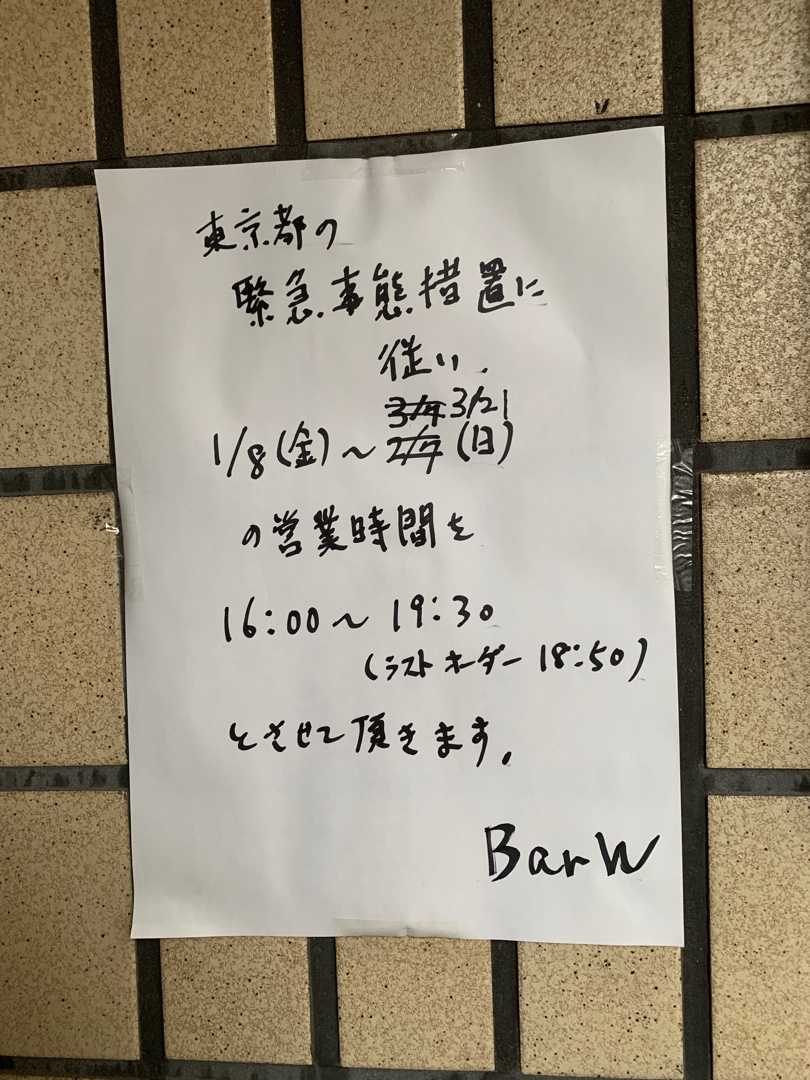 東京都の
緊急事態措置に
従い、
3/7 3/21
1/8(金)～2/7(日)
の営業時間を
16:00～19:30
(ラストオーダー 18:50)
とさせて頂きます。
Bar W